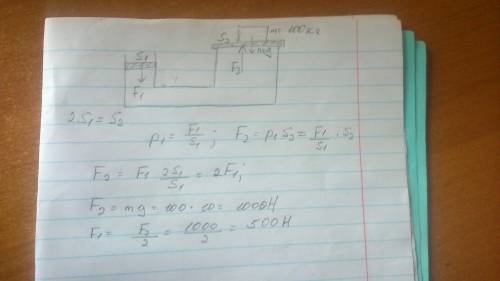 S₁
S₂
m=100кг
F₁
F₂
2S₁ = S₂
p₁ = F₁/S₁ ; F₂ = p₁ S₂ = F₁/S₁ · S₂
F₂ = F₁ 2S₁/S₁ = 2F₁;
F₂ = mg = 100 · 10 = 1000Н
F₁ = F₂/2 = 1000/2 = 500Н